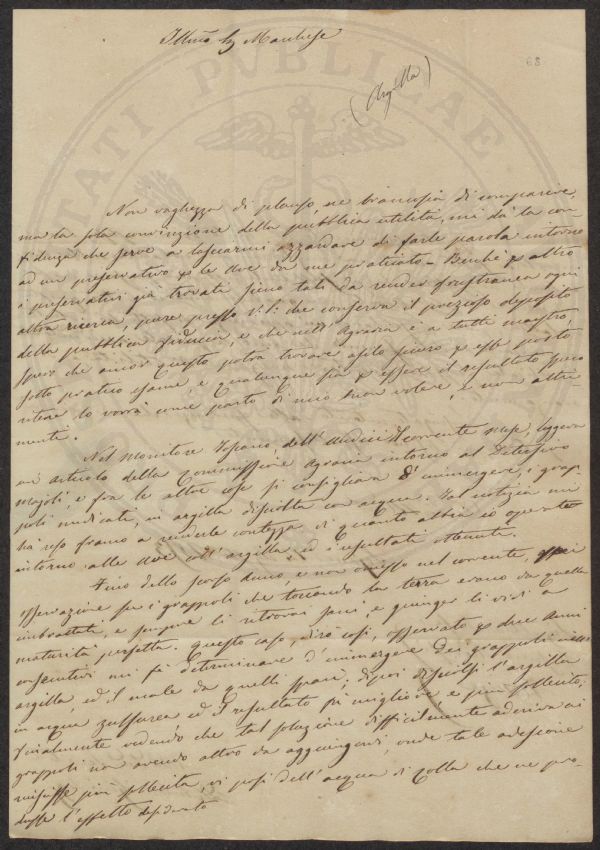 Illmo Sig Marchese
68
(Argilla)
TATI PVBLICAE
Non vaghezza di plauso, ne bramosia di comparire,
ma la sola convinzione della pubblica utilità, mi dà la con-
fidenza che serve a lasciarmi azzardare di farle parola intorno
ad un preservativo per le Uve da me praticato – Benchè per altro
i preservativi già trovati sieno tali da render soprafranca ogni
altra ricerca, pure presso V.S: che conserva il prezioso deposito
della pubblica fiducia, e che nell' Agraria è a tutti maestro,
spero che ancor questo potrà trovare asilo sicuro per esser posto
sotto pratico esame e qualunque sia per essere il resultato spero
ritener lo vorrà come parto di mio buon volere, e non altri-
mente.
Nel Monitore Toscano dell' Undici il corrente mese, leggeva
un articolo della Commissione Agraria intorno al Detersivo
Majoli, e fra le altre cose si consigliava d' immergere i grap-
poli medicati, in argilla disciolta con acqua. Tal notizia mi
ha reso franco a renderle contezza di quanto abbia io operato
intorno alle Uve coll' argilla ed i resultati ottenuti.
Fino dello scorso Anno, e non omesso nel corrente, feci
osservazione su i grappoli che toccando la terra erano da quella
imbrattati, e sempre li ritrovai sani, e giunger li vidi a
maturità perfetta. Questo caso, dirò così, osservato per due Anni
consecutivi mi fè determinare d' immergere dei grappoli nell'
argilla, ed il male da quelli sparì; di poi disciolsi l' argilla
in acqua zulfurea ed il resultato fu migliore e più sollecito;
finalmente vedendo che tal soluzione difficilmente aderiva ai
grappoli non avendo altro da aggiungervi, onde tale adesione
riuscisse più sollecita, vi posi dell' acqua di Colla che ne pro-
dusse l' effetto desiderato